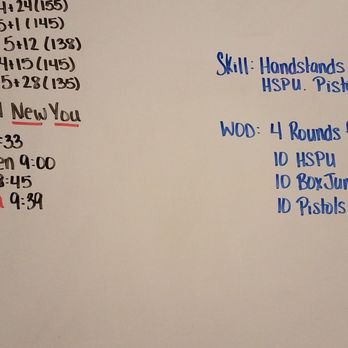 4+24(155)
5+1(145)
5+12(138)
4+15(145)
5+28(135)
New You
:33
en 9:00
8:45
9:39
Skill: Handstands
HSPU. Pisto
WOD: 4 Rounds
10 HSPU
10 Box Jum
10 Pistols